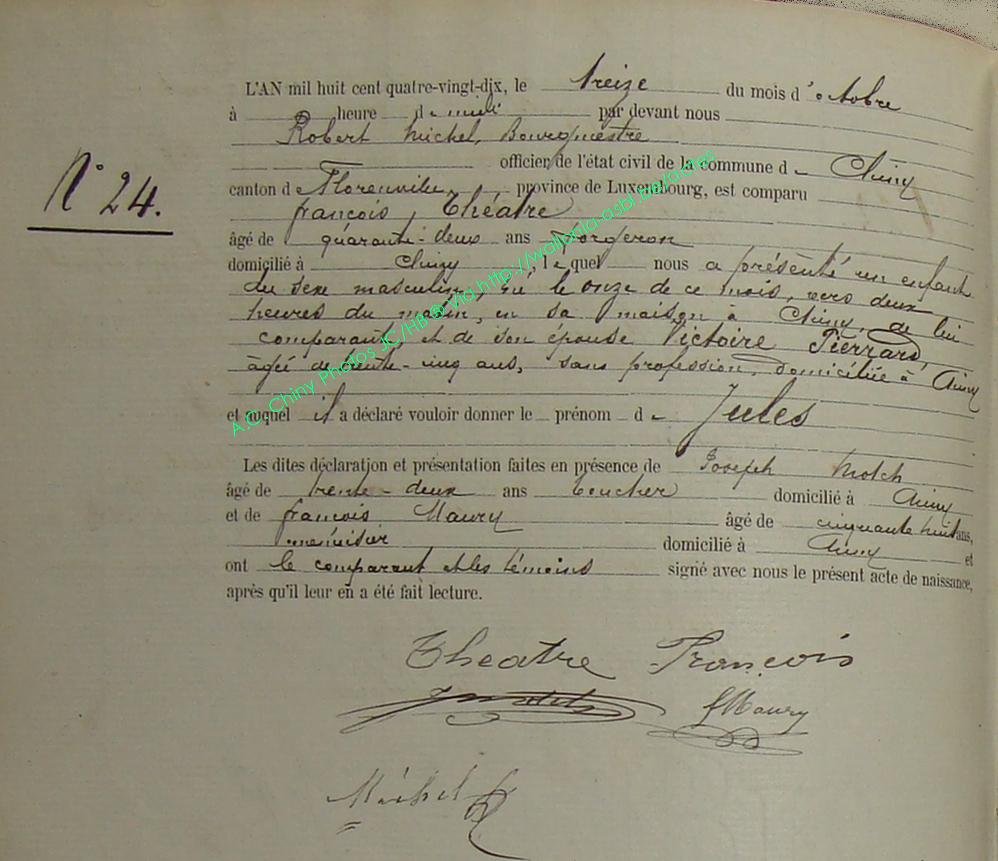 L'AN mil huit cent quatre-vingt-dix, le treize du mois d'octobre
à heure de midi par devant nous
Robert Michel, Bourgmestre
officier de l'état civil de la commune de Chiny
N° 24.
canton de Florenville province de Luxembourg, est comparu
françois, Théâtre
âgé de quarante-deux ans forgeron
domicilié à Chiny, lequel nous a présenté un enfant
du sexe masculin, né le onze de ce mois, vers deux
heures du matin, en sa maison à Chiny, de lui
comparant, et de son épouse Victoire Pierrard,
âgée de trente-cinq ans, sans profession, domiciliée à Chiny
et auquel il a déclaré vouloir donner le prénom de Jules
Les dites déclaration et présentation faites en présence de Joseph
âgé de trente-deux ans boucher domicilié à Chiny
et de françois Maury âgé de cinquante huit ans,
menuisier domicilié à Chiny et
ont le comparant et les témoins signé avec nous le présent acte de naissance,
après qu'il leur en a été fait lecture.
Theatre François
fMaury
Michel R
A.C. Chiny Photos JC/HB @ via http://wallonia-asbl.be/a.das